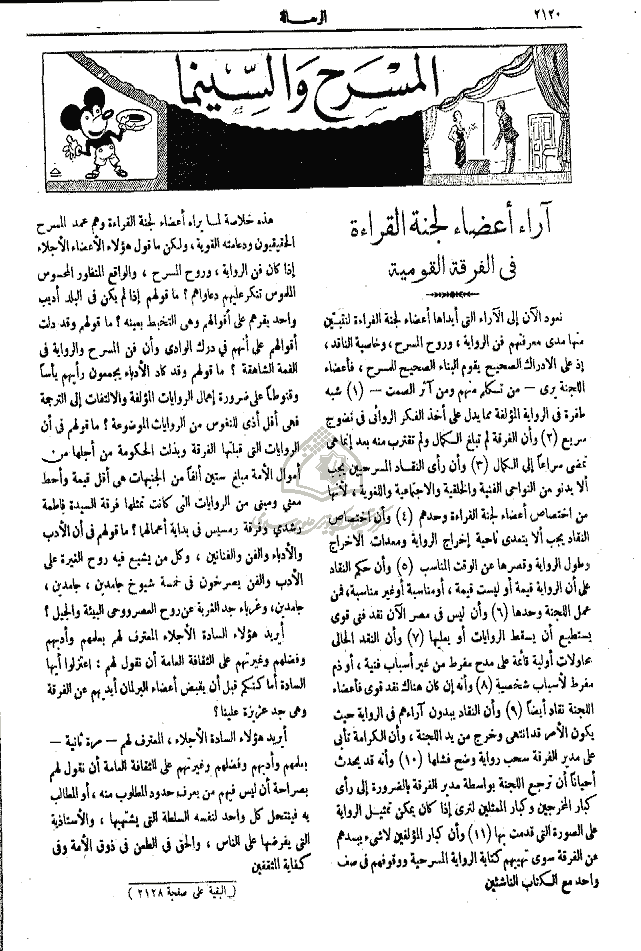 ٢١٢٠
الرسالة
المسرح والسينما
آراء أعضاء لجنة القراءة
فى الفرقة القومية
نعود الآن إلى الآراء التى أبداها أعضاء لجنة القراءة لنتبين
منها مدى معرفتهم فن الرواية ، وروح المسرح ، وخاصية الناقد ،
إذ على الادراك الصحيح يقوم البناء الصحيح للمسرح ، فأعضاء
اللجنة يرى — من تكلم منهم ومن آثر الصمت — (١) شبه
طفرة فى الرواية المؤلفة مما يدل على أخذ الفكر الروائى فى نضوج
سريع (٢) وأن الفرقة لم تبلغ الكمال ولم تقترب منه بعد إنما هى
تمضى سراعاً إلى الكمال (٣) وأن رأى النقاد المسرحيين يجب
ألا يدنو من النواحى الفنية والخلقية والاجتماعية واللغوية ، لأنها
من اختصاص أعضاء لجنة القراءة وحدهم (٤) وأن اختصاص
النقاد يجب ألا يتعدى ناحية إخراج الرواية ومعدات الاخراج
وطول الرواية وقصرها عن الوقت المناسب (٥) وأن حكم النقاد
على أن الرواية قيمة أو ليست قيمة ، أو مناسبة أو غير مناسبة، فمن
عمل اللجنة وحدها (٦) وأن ليس فى مصر الآن نقد فنى قوى
يستطيع أن يسقط الروايات أو يعليها (٧) وأن النقد الحالى
محاولات أولية قائمة على مدح مفرط من غير أسباب فنية ، أو ذم
مفرط لأسباب شخصية (٨) وأنه إن كان هناك نقد قوى فأعضاء
اللجنة نقاد أيضاً (٩) وأن النقاد يبدون آراءهم فى الرواية حيث
يكون الأمر قد انتهى وخرج من يد اللجنة ، وأن الكرامة تأبى
على مدير الفرقة سحب رواية وضح فشلها (١٠) وأنه قد يحدث
أحياناً أن ترجع اللجنة بواسطة مدير الفرقة بالضرورة إلى رأى
كبار المخرجين وكبار الممثلين لترى إذا كان يمكن تمثيل الرواية
على الصورة التى قدمت بها (١١) وأن كبار المؤلفين لاشىء يبعدهم
عن الفرقة سوى تهيبهم كتابة الرواية المسرحية ووقوفهم فى صف
واحد مع الكتاب الناشئين
هذه خلاصة لما يراه أعضاء لجنة القراءة وهم عمد المسرح
الحقيقيون ودعامته القوية ، ولكن ما قول هؤلاء الأعضاء الأجلاء
إذا كان فن الرواية ، وروح المسرح ، والواقع المنظور المحسوس
الملموس تنكر عليهم دعاواهم ؟ ما قولهم إذا لم يكن فى البلد أديب
واحد يقرهم على أقوالهم وهى التخبط بعينه ؟ ما قولهم وقد دلت
أقوالهم على أنهم فى درك الوادى وأن فن المسرح والرواية فى
القمة الشاهقة ؟ ما قولهم وقد كاد الأدباء يجمعون رأيهم يأساً
وقنوطاً على ضرورة إهمال الروايات المؤلفة والالتفات إلى الترجمة
فهى أقل أذى للنفوس من الروايات الموضوعة ؟ ما قولهم فى أن
الروايات التى قبلتها الفرقة وبذلت الحكومة من أجلها من
أموال الأمة مبلغ ستين ألفاً من الجنيهات هى أقل قيمة وأحط
معنى ومبنى من الروايات التى كانت تمثلها فرقة السيدة فاطمة
رشدى وفرقة رمسيس فى بداية أعمالها ؟ ما قولهم فى أن الأدب
والأدباء والفن والفنانين ، وكل من يشيع فيه روح الغيرة على
الأدب والفن يصرخون فى خمسة شيوخ جامدين ، جامدين ،
جامدين، وغرباء جد الغربة عن روح العصر وروحى البيئة والجيل ؟
أيريد هؤلاء السادة الأجلاء المعترف لهم بعلمهم وأدبهم
وفضلهم وغيرتهم على الثقافة العامة أن نقول لهم : اعتزلوا أيها
السادة أماكنكم قبل أن يقبض أعضاء البرلمان أيديهم عن الفرقة
وهى جد عزيزة علينا ؟
أيريد هؤلاء السادة الأجلاء ، المعترف لهم — مرة ثانية —
بعلمهم وأدبهم وفضلهم وغيرتهم على الثقافة العامة أن نقول لهم
بصراحة أن ليس فيهم من يعرف حدود المطلوب منه ، أو المطالب
به فينتحل كل واحد لنفسه السلطة التى يشتهيها ، والأستاذية
التى يفرضها على الناس ، والحق فى الطعن فى ذوق الأمة وفى
كفاية المثقفين
( البقية على صفحة ٢١٢٨ )